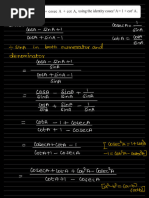 cosec A + cot A, using the identity cosec² A = 1 + cot² A.
cosA - sinA + 1
cosA + sinA - 1
cosecA = 1
sinA
÷ sinA in both numerator and
denominator
cosA - sinA + 1
sinA
cosA + sinA - 1
sinA
cosA - sinA + 1
sinA sinA sinA
cosA + sinA - 1
sinA sinA sinA
cotA - 1 + cosecA
cotA + 1 - cosecA
cosecA + cotA - 1
cotA + 1 - cosecA
cosecA + cotA + cot²A - cosec²A
cotA + 1 - cosecA